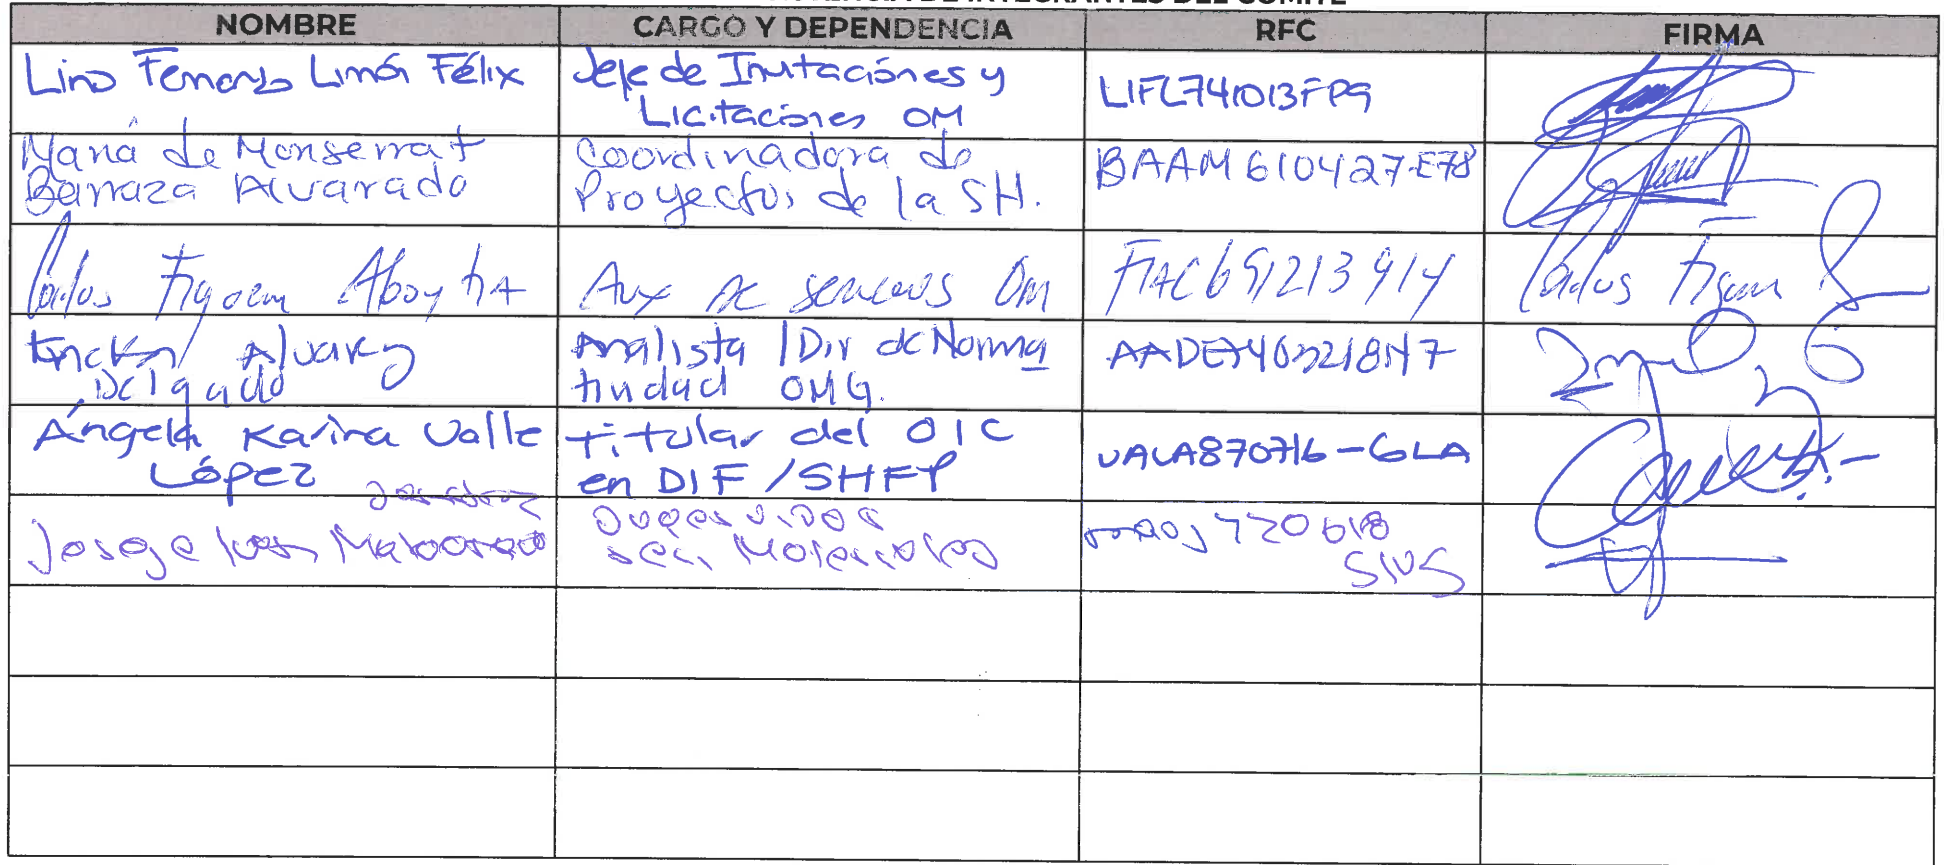 INTEGRANTES DEL COMITÉ
NOMBRE CARGO Y DEPENDENCIA RFC FIRMA
Lino Fernando Limón Félix
Jefe de Invitaciónes y
Licitaciones OM
LIFL741013FP9
María de Monserrat
Barraza Alvarado
Coordinadora de
Proyectos de la SH.
BAAM610427-E78
Carlos Figueroa Aboytia
Aux de servicios OM
FIAC651213914
Carlos Figueroa
Alvarez
Delgado
Analista / Dir de Norma
tividad OMG.
Ángela Karina Valle
López
Titular del OIC
en DIF /SHFP
VALA870716-GLA
Jorge Ivan Maldonado
Supervisor